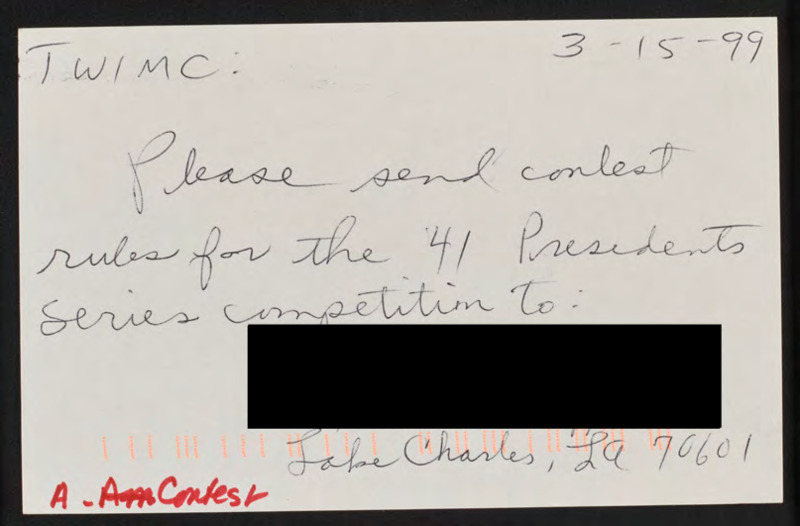 TWIMC: 3-15-99
Please send contest
rules for the '41 Presidents
Series competition to:
Lake Charles, LA 70601
A. Am Contest